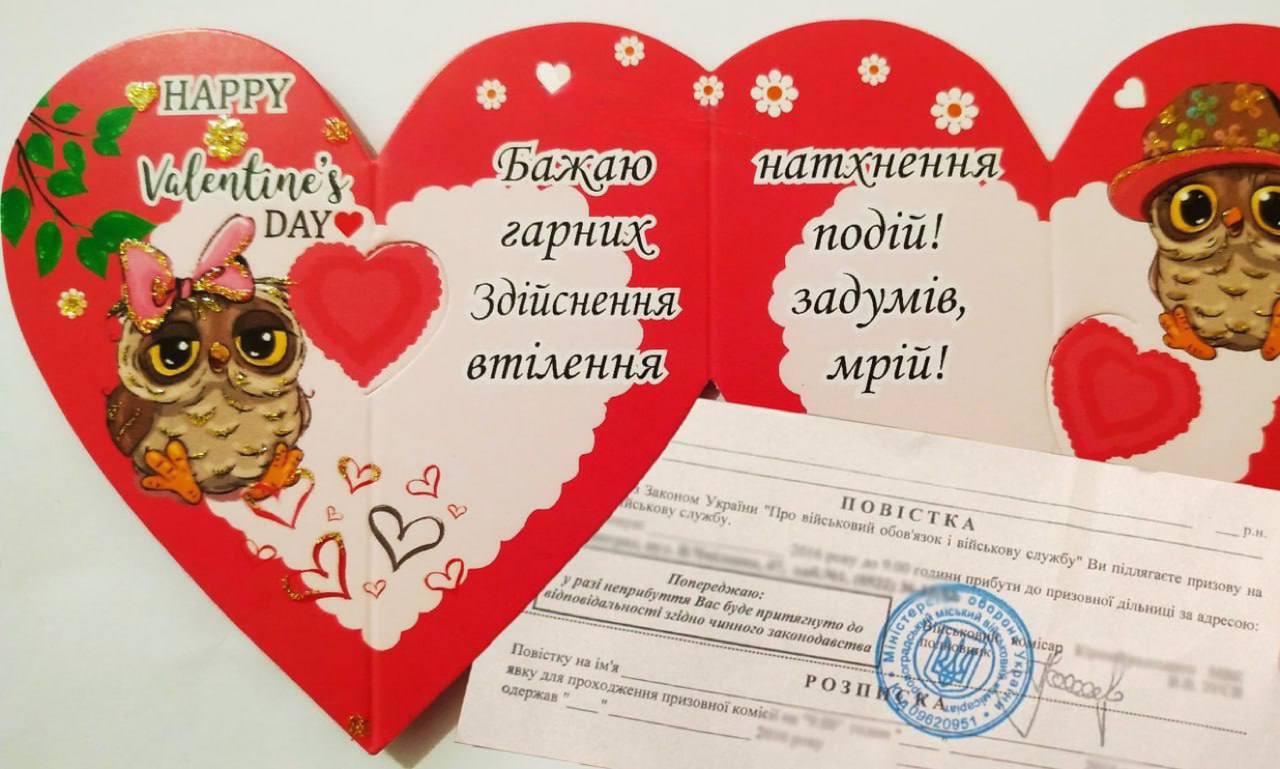 HAPPY
Valentine's
DAY
Бажаю натхнення
гарних подій!
Здійснення задумів,
втілення мрій!
ПОВІСТКА
р.н.
Законом України "Про військовий обов'язок і військову службу" Ви підлягаєте призову на
військову службу.
2016 року до 9.00 години прибути до призовної дільниці за адресою:
Попереджаю:
у разі неприбуття Вас буде притягнуто до
відповідальності згідно чинного законодавства
Військовий комісар
полковник
Міністерство оборони України
міський військовий комісаріат
09620951
РОЗПИСКА
Повістку на ім'я
явку для проходження призовної комісії на "9.00" годин
одержав "____"
2016 року